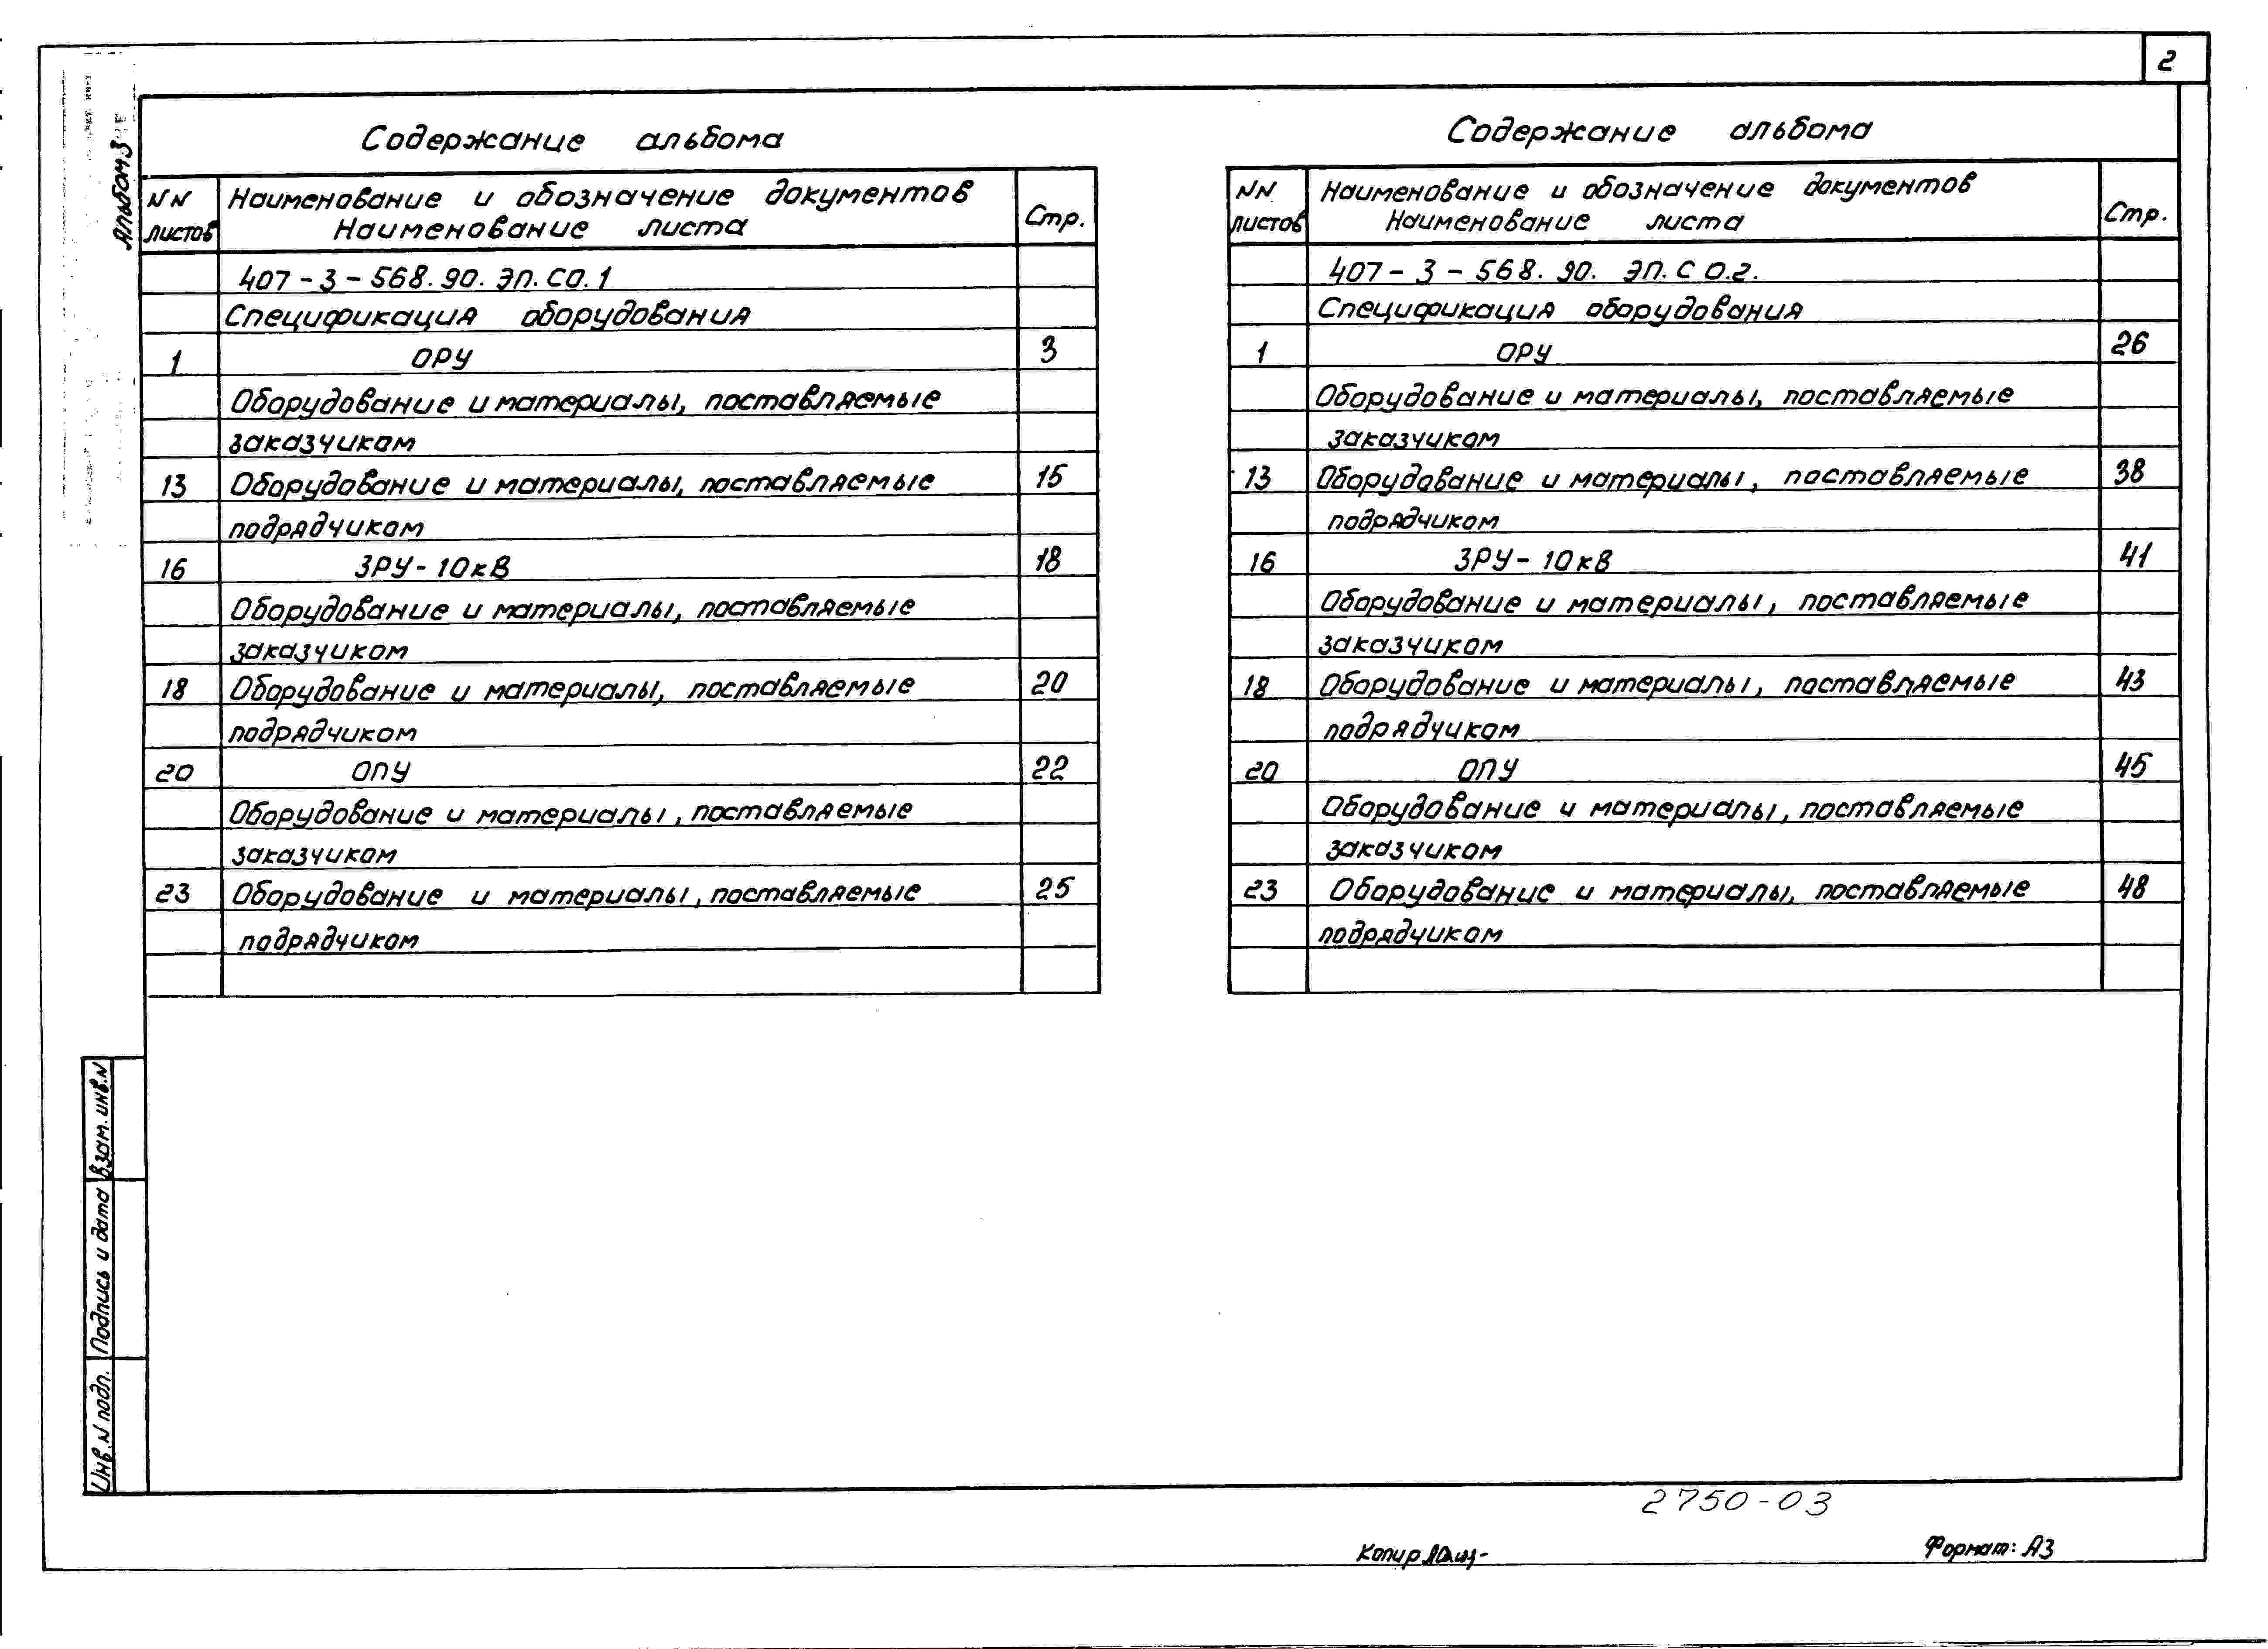 2
Альбом 3
Содержание альбома
NN листов
Наименование и обозначение документов
Наименование листа
Стр.
407-3-568.90.ЭП.СО.1
Спецификация оборудования
1 ОРУ 3
Оборудование и материалы, поставляемые
заказчиком
13 Оборудование и материалы, поставляемые 15
подрядчиком
16 ЗРУ-10кВ 18
Оборудование и материалы, поставляемые
заказчиком
18 Оборудование и материалы, поставляемые 20
подрядчиком
20 ОПУ 22
Оборудование и материалы, поставляемые
заказчиком
23 Оборудование и материалы, поставляемые 25
подрядчиком
Содержание альбома
NN листов
Наименование и обозначение документов
Наименование листа
Стр.
407-3-568.90. ЭП.СО.2.
Спецификация оборудования
1 ОРУ 26
Оборудование и материалы, поставляемые
заказчиком
13 Оборудование и материалы, поставляемые 38
подрядчиком
16 ЗРУ-10кВ 41
Оборудование и материалы, поставляемые
заказчиком
18 Оборудование и материалы, поставляемые 43
подрядчиком
20 ОПУ 45
Оборудование и материалы, поставляемые
заказчиком
23 Оборудование и материалы, поставляемые 48
подрядчиком
Взам. инв. N
Подпись и дата
Инв. N подл.
2750-03
Копир
Формат: А3